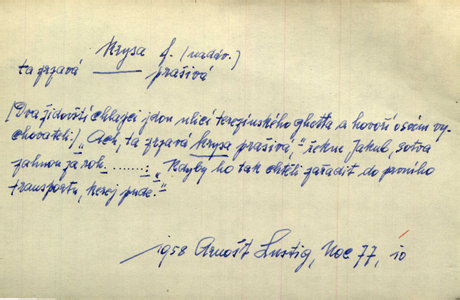 krysa f. (nadáv.)
ta zrzavá ——— prašivá
(Dva židovští chlapci jdou ulicí terezínského ghetta a hovoří o svém vy-
chovateli:) „Ach, ta zrzavá krysa prašivá," řekne Jakub, sotva
zahnou za roh ........: „Kdyby ho tak chtěli zařadit do prvního
transportu, kerej pude."
1958 Arnošt Lustig, Noc 77, io